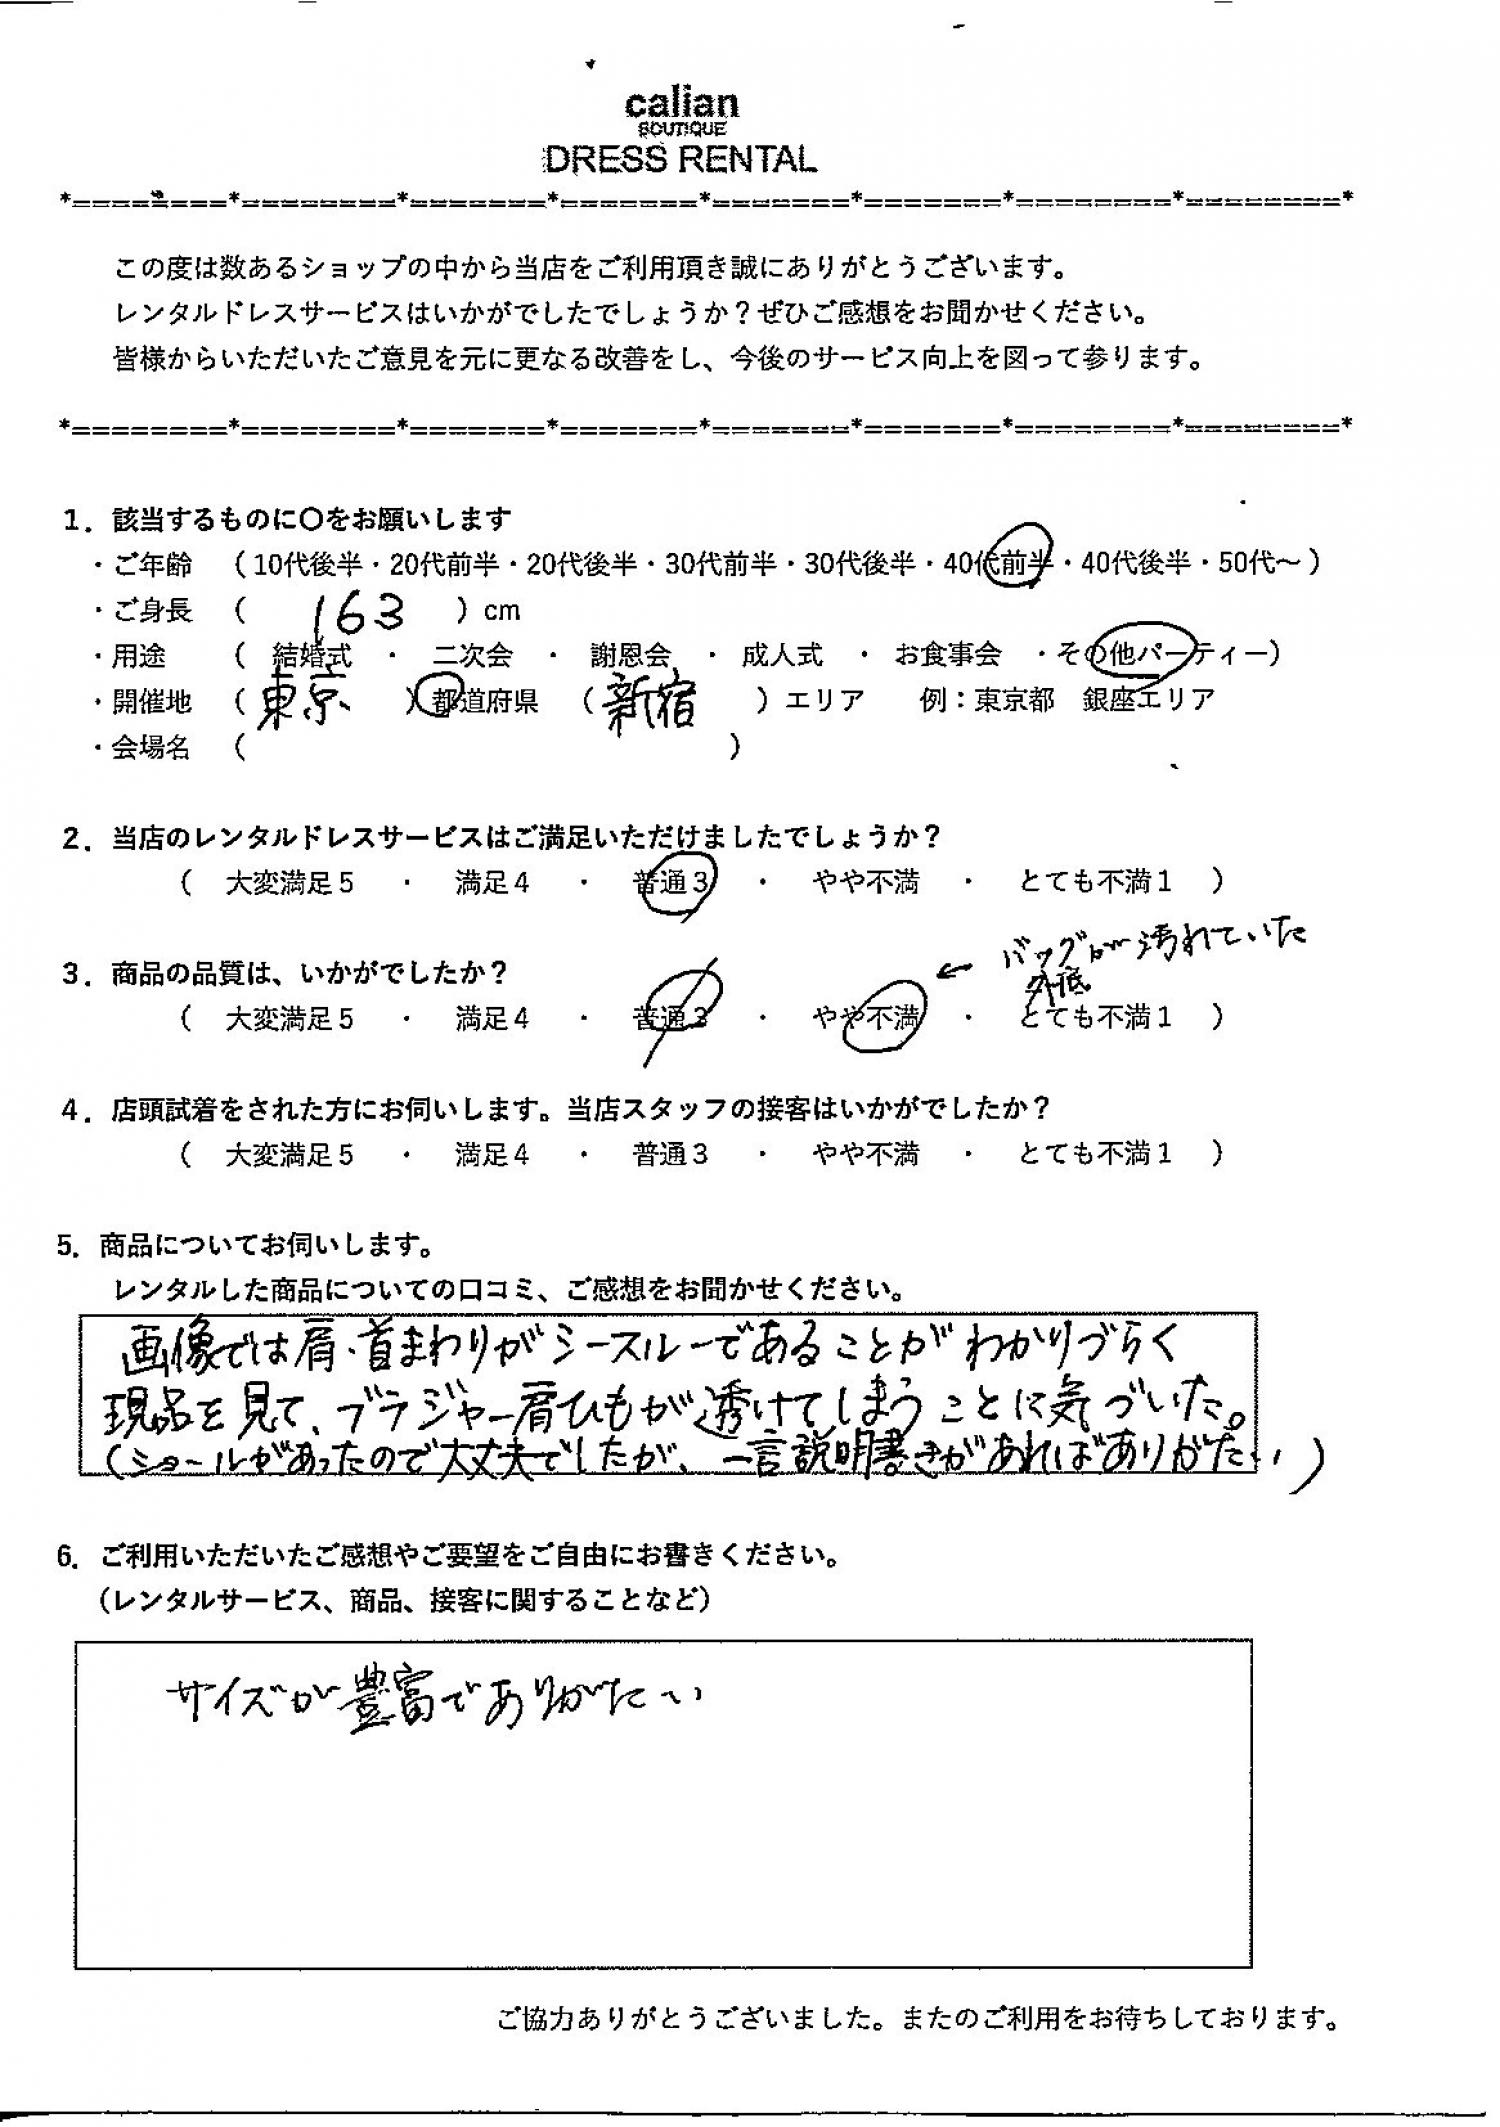 calian
BOUTIQUE
DRESS RENTAL
*========*========*=======*=======*=======*=======*========*========*
この度は数あるショップの中から当店をご利用頂き誠にありがとうございます。
レンタルドレスサービスはいかがでしたでしょうか？ぜひご感想をお聞かせください。
皆様からいただいたご意見を元に更なる改善をし、今後のサービス向上を図って参ります。
*========*========*=======*=======*=======*=======*========*========*
1．該当するものに〇をお願いします
・ご年齢 （10代後半・20代前半・20代後半・30代前半・30代後半・40代前半・40代後半・50代～）
・ご身長 （ 163 ）cm
・用途 （ 結婚式 ・ 二次会 ・ 謝恩会 ・ 成人式 ・ お食事会 ・その他パーティー）
・開催地 （ 東京 ）都道府県 （ 新宿 ）エリア 例：東京都 銀座エリア
・会場名 （ ）
2．当店のレンタルドレスサービスはご満足いただけましたでしょうか？
（ 大変満足５ ・ 満足４ ・ 普通３ ・ やや不満 ・ とても不満１ ）
3．商品の品質は、いかがでしたか？ ← バッグが汚れていた
外底
（ 大変満足５ ・ 満足４ ・ 普通３ ・ やや不満 ・ とても不満１ ）
4．店頭試着をされた方にお伺いします。当店スタッフの接客はいかがでしたか？
（ 大変満足５ ・ 満足４ ・ 普通３ ・ やや不満 ・ とても不満１ ）
5．商品についてお伺いします。
レンタルした商品についての口コミ、ご感想をお聞かせください。
画像では肩・首まわりがシースルーであることがわかりづらく
現品を見て、ブラジャー肩ひもが透けてしまうことに気づいた。
（ショールがあったので大丈夫でしたが、一言説明書きがあればありがたい）
6．ご利用いただいたご感想やご要望をご自由にお書きください。
（レンタルサービス、商品、接客に関することなど）
サイズが豊富でありがたい
ご協力ありがとうございました。またのご利用をお待ちしております。